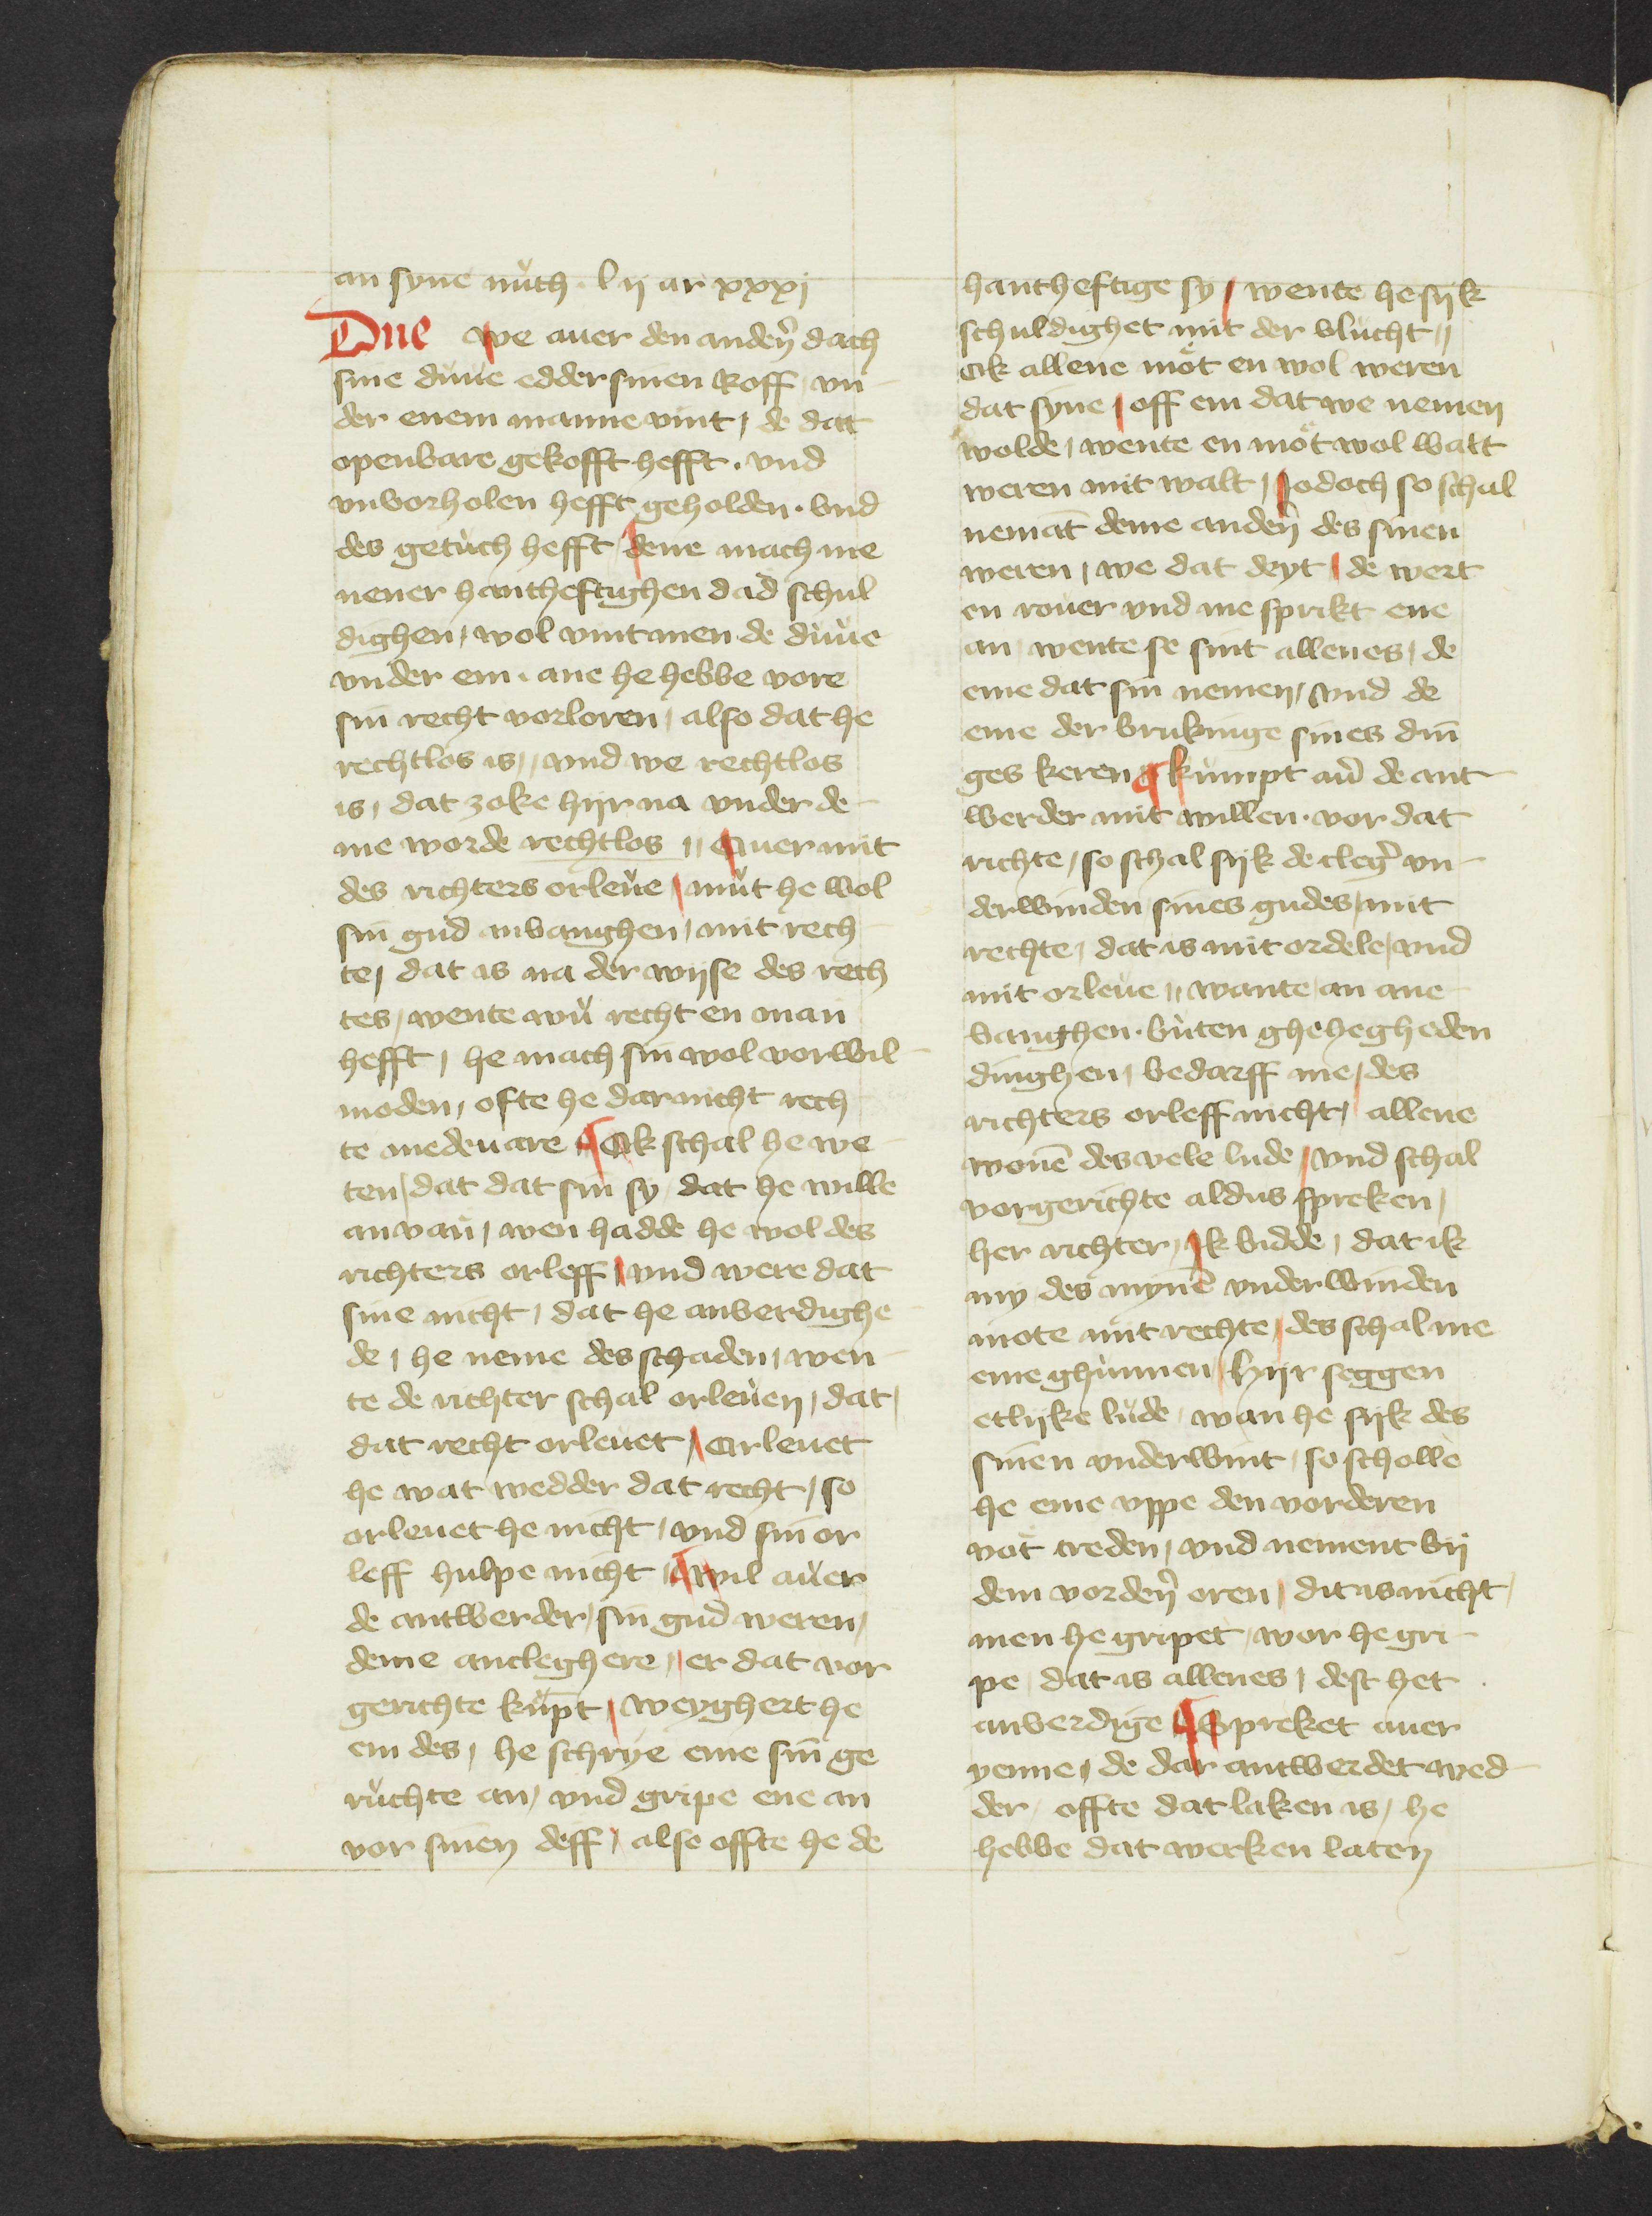 an syne nůth · l ij ar xxxj
Due we auer den andeꝝ̄ dach
sine důue edder sinen Roff / vn
der enem manne vint / de dat
openbare gekofft hefft · vnd
vnvorholen hefft geholden · vnd
des getůch hefft / dene mach me
nener hantheftighen dad schul
dighen / wol vint men de důue
vnder em · ane he hebbe vore
sin recht vorloren / also dat he
rechtlos is // vnd we rechtlos
is / dat zoke hijr na vnder de
me worde rechtlos // Auer mit
des richters orleue / můt he wol
sin gud anvanghen / mit rech
te / dat is na der wijse des rech
tes / wente wů recht en man
hefft / he mach sin wol vorwil
moden / ofte he dar nicht rech
te mede vare ¶ Ok schal he we
ten / dat dat sin sy dat he wille
anvan / wen hadde he wol des
richters orleff / vnd were dat
sine nicht / dat he anverdighe
de / he neme des schaden / wen
te de richter schal orleuen / dat /
dat recht orleuet / Orleuet
he wat wedder dat recht / so
orleuet he nicht / vnd sin or
leff hulpe nicht ¶ wil auer
de antwerder / sin gud weren /
deme ancleghere // er dat vor
gerichte kůpt / weyghert he
em des / he schrye eme sin ge
růchte an / vnd gripe ene an
vor sinen deff / also offte he de
hantheftige sy / wente he sijk
schuldighet mit der vlucht //
Ok allene mot en wol weren
dat syne / off em dat we nemen
wolde / wente en mot wol walt
weren mit walt / Jodoch so schal
nemāt deme andeꝝ̄ des sinen
weren / we dat deyt / de wert
en rouer vnd me sprikt ene
an / wente se sint allenes / de
eme dat sin nemen / vnd de
eme der brukinge sines din
ges keren ¶ kůmpt au̇ de ant
werder mit willen · vor dat
richte / so schal sijk de cleg̉ vn
derwinden sines gudes / mit
rechte / dat is mit ordele / vnd
mit orleue // wante / an ane
vanghen · bůten ghehegheden
dinghen / bedarff me / des
richters orleff nicht / allene
wonē des vele lude / vnd schal
vorgerichte aldus spreken /
her richter / Ik bidde / dat ik
my des mynē vnderwinden
mote mit rechte / des schal me
eme ghůnnen / hijr seggen
etlijke lůde / wan he sijk des
sinen vnderwint / so scholle
he eme vppe den vorderen
vot treden / vnd nement bij
dem vordeꝝ̄ oren / dit is nicht /
men he gripet / wor he gri
pe / dat is allenes / dest het
anverdige ¶ Spreket auer
yenne / de dar antwerdet wed
der / offte dat laken is / he
hebbe dat werken laten